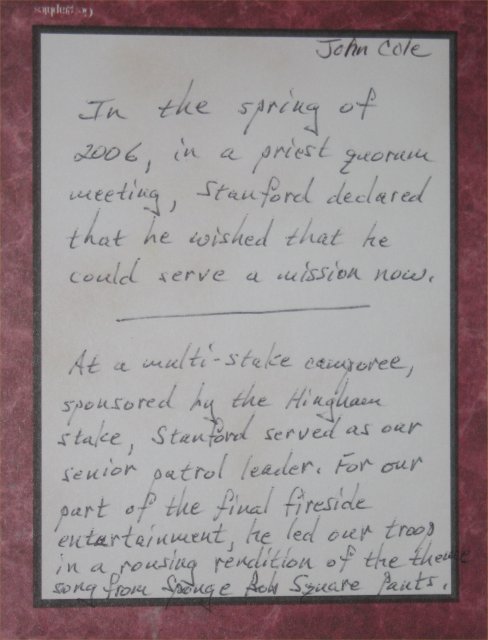 John Cole
In the spring of
2006, in a priest quorum
meeting, Stanford declared
that he wished that he
could serve a mission now.
At a multi-stake camporee,
sponsored by the Hingham
stake, Stanford served as our
senior patrol leader. For our
part of the final fireside
entertainment, he led our troop
in a rousing rendition of the theme
song from Sponge Bob Square Pants.